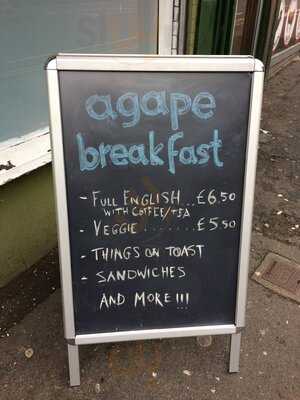 agape
breakfast
- FULL ENGLISH .... £6.50
WITH COFFEE/TEA
- VEGGIE ........ £5.50
- THINGS ON TOAST
- SANDWICHES
AND MORE!!!